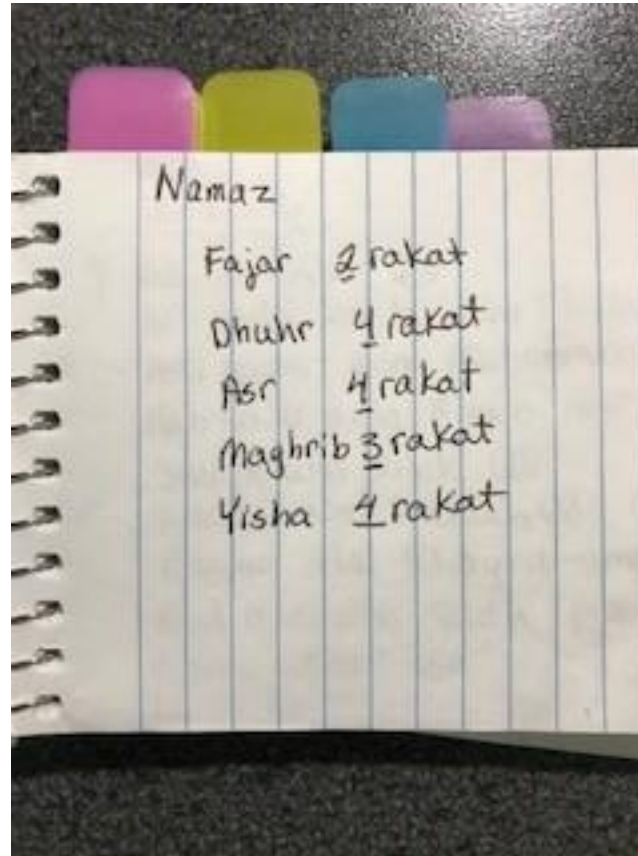 Namaz
Fajar 2 rakat
Dhuhr 4 rakat
Asr 4 rakat
Maghrib 3 rakat
Yisha 4 rakat